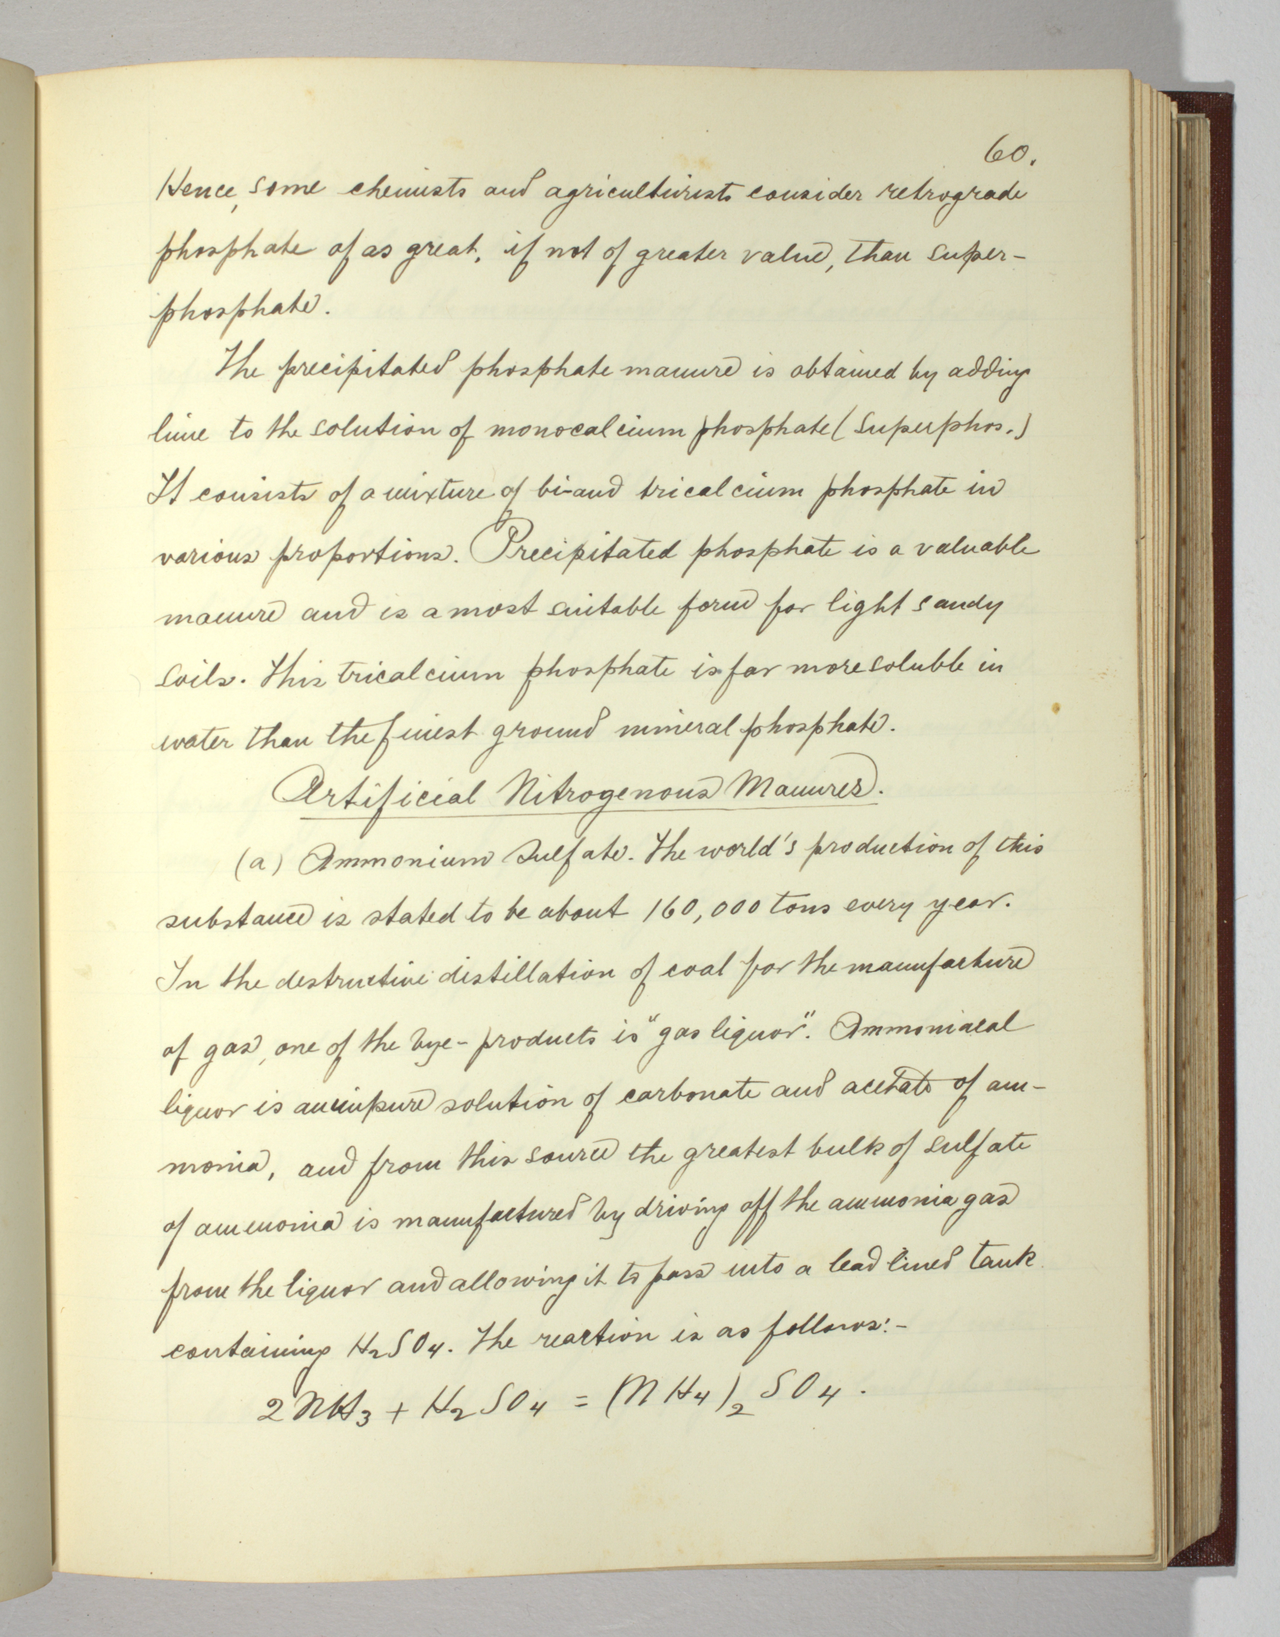 60.
Hence, some chemists and agriculturists consider retrograde
phosphate of as great, if not of greater value, than super-
phosphate.
The precipitated phosphate manure is obtained by adding
lime to the solution of monocalcium phosphate (superphos.)
It consists of a mixture of bi-and tricalcium phosphate in
various proportions. Precipitated phosphate is a valuable
manure and is a most suitable form for light sandy
soils. This tricalcium phosphate is far more soluble in
water than the finest ground mineral phosphate.
Artificial Nitrogenous Manures.
(a) Ammonium Sulfate. The world's production of this
substance is stated to be about 160,000 tons every year.
In the destructive distillation of coal for the manufacture
of gas, one of the bye-products is "gas liquor". Ammoniacal
liquor is an impure solution of carbonate and acetate of am-
monia, and from this source the greatest bulk of sulfate
of ammonia is manufactured by driving off the ammonia gas
from the liquor and allowing it to pass into a lead lined tank
containing H₂SO₄. The reaction is as follows:-
2NH₃ + H₂SO₄ = (NH₄)₂SO₄.